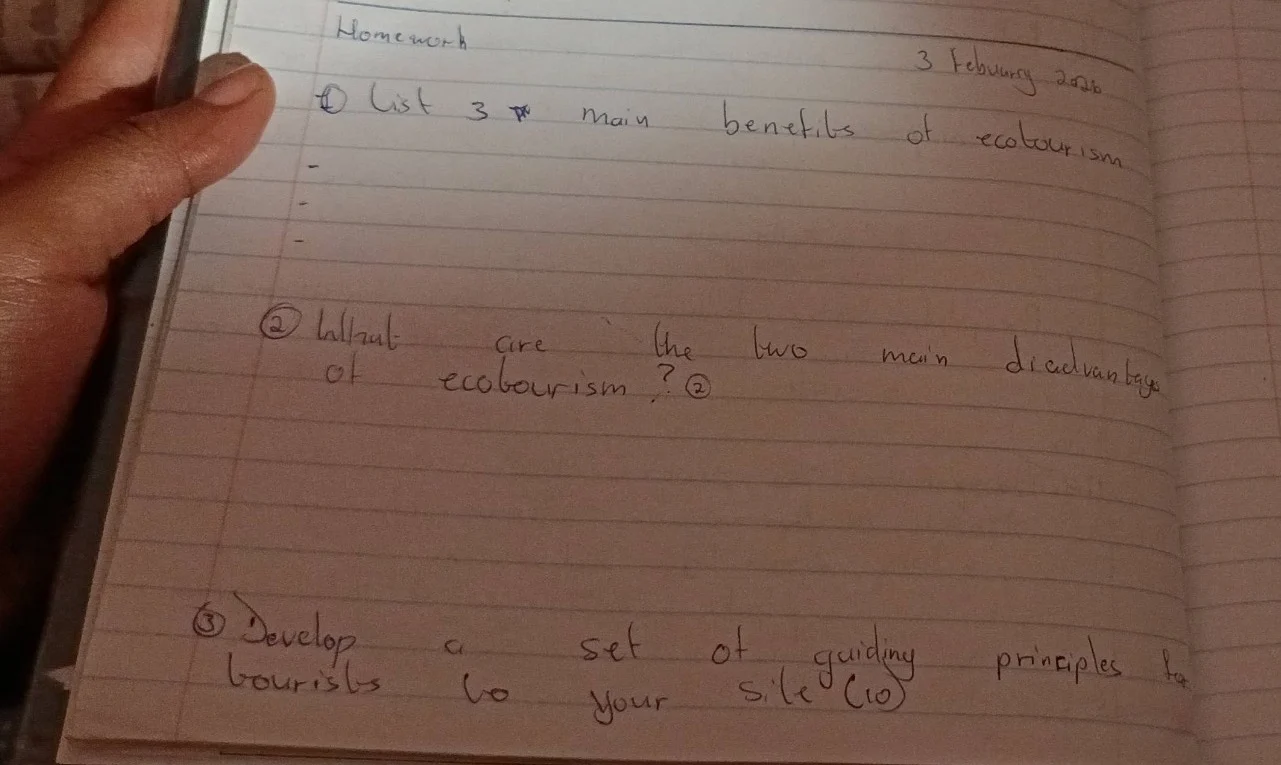 Homework
3 Febuary 2026
① List 3 main benefits of ecotourism
-
-
-
② What are the two main diadvantage
of ecotourism? ②
③ Develop a set of guiding principles for
tourists to your site (10)